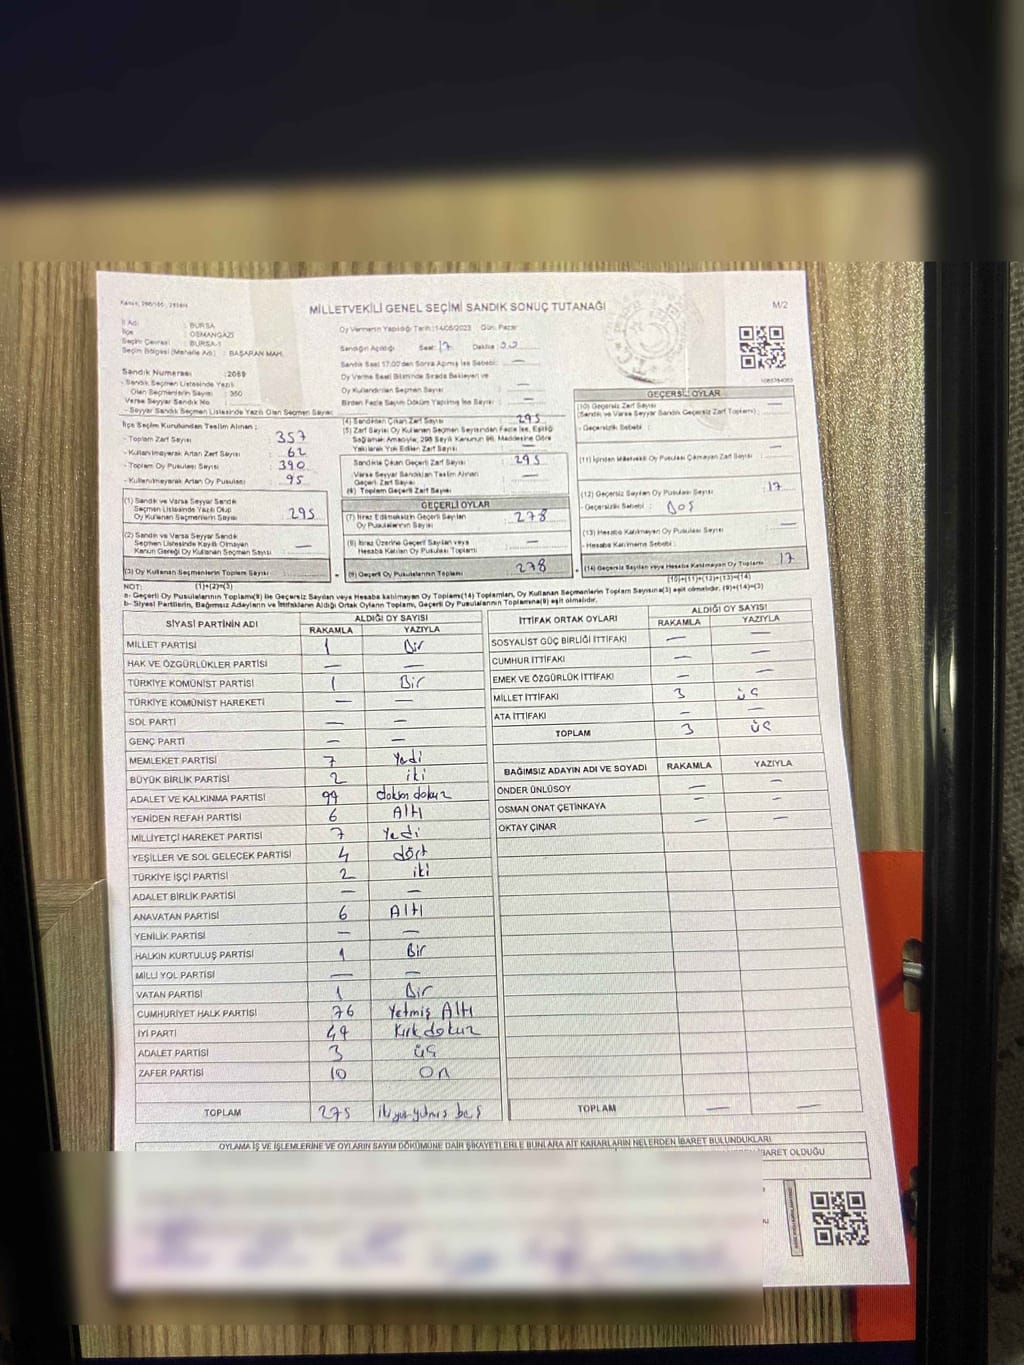 MİLLETVEKİLİ GENEL SEÇİMİ SANDIK SONUÇ TUTANAĞI
M/2
İl Adı : BURSA
İlçe : OSMANGAZİ
Seçim Çevresi : BURSA-1
Seçim Bölgesi (Mahalle Adı) : BAŞARAN MAH.
Sandık Numarası :2069
- Sandık Seçmen Listesinde Yazılı
Olan Seçmenlerin Sayısı : 350
Varsa Seyyar Sandık No :
- Seyyar Sandık Seçmen Listesinde Yazılı Olan Seçmen Sayısı:
Oy Vermenin Yapıldığı Tarih:14/05/2023 Gün: Pazar
Sandığın Açıldığı Saat: 17 Dakika: 00
Sandık Saat 17.00'den Sonra Açılmış İse Sebebi: —
Oy Verme Saati Bitiminde Sırada Bekleyen ve
Oy Kullandırılan Seçmen Sayısı : —
Birden Fazla Sayım Döküm Yapılmış İse Sayısı : —
İlçe Seçim Kurulundan Teslim Alınan ;
- Toplam Zarf Sayısı : 357
- Kullanılmayarak Artan Zarf Sayısı : 62
- Toplam Oy Pusulası Sayısı : 390
- Kullanılmayarak Artan Oy Pusulası : 95
(1) Sandık ve Varsa Seyyar Sandık
Seçmen Listesinde Yazılı Olup
Oy Kullanan Seçmenlerin Sayısı : 295
(2) Sandık ve Varsa Seyyar Sandık
Seçmen Listesinde Kayıtlı Olmayan
Kanun Gereği Oy Kullanan Seçmen Sayısı : —
(3) Oy Kullanan Seçmenlerin Toplam Sayısı :
(1)+(2)=(3)
(4) Sandıktan Çıkan Zarf Sayısı : 295
(5) Zarf Sayısı Oy Kullanan Seçmen Sayısından Fazla İse, Eşitliği
Sağlamak Amacıyla; 298 Sayılı Kanunun 98. Maddesine Göre
Yakılarak Yok Edilen Zarf Sayısı : —
Sandıkta Çıkan Geçerli Zarf Sayısı : 295
Varsa Seyyar Sandıktan Teslim Alınan
Geçerli Zarf Sayısı : —
(6) Toplam Geçerli Zarf Sayısı
GEÇERLİ OYLAR
(7) İtiraz Edilmeksizin Geçerli Sayılan
Oy Pusulalarının Sayısı : 278
(8) İtiraz Üzerine Geçerli Sayılan veya
Hesaba Katılan Oy Pusulası Toplamı : —
(9) Geçerli Oy Pusulalarının Toplamı : 278
GEÇERSİZ OYLAR
(10) Geçersiz Zarf Sayısı
(Sandık ve Varsa Seyyar Sandık Geçersiz Zarf Toplamı) : —
- Geçersizlik Sebebi :
(11) İçinden Milletvekili Oy Pusulası Çıkmayan Zarf Sayısı : —
(12) Geçersiz Sayılan Oy Pusulası Sayısı : 17
- Geçersizlik Sebebi : Boş
(13) Hesaba Katılmayan Oy Pusulası Sayısı : —
- Hesaba Katılmama Sebebi :
(14) Geçersiz Sayılan veya Hesaba Katılmayan Oy Toplamı : 17
(10)+(11)+(12)+(13)=(14)
NOT:
a- Geçerli Oy Pusulalarının Toplamı(9) ile Geçersiz Sayılan veya Hesaba Katılmayan Oy Toplamı(14) Toplamları, Oy Kullanan Seçmenlerin Toplam Sayısına(3) eşit olmalıdır. (9)+(14)=(3)
b- Siyasi Partilerin, Bağımsız Adayların ve İttifakların Aldığı Ortak Oyların Toplamı, Geçerli Oy Pusulalarının Toplamına(9) eşit olmalıdır.
SİYASİ PARTİNİN ADI ALDIĞI OY SAYISI
RAKAMLA YAZIYLA
MİLLET PARTİSİ 1 Bir
HAK VE ÖZGÜRLÜKLER PARTİSİ — —
TÜRKİYE KOMÜNİST PARTİSİ 1 Bir
TÜRKİYE KOMÜNİST HAREKETİ — —
SOL PARTİ — —
GENÇ PARTİ — —
MEMLEKET PARTİSİ 7 Yedi
BÜYÜK BİRLİK PARTİSİ 2 iki
ADALET VE KALKINMA PARTİSİ 99 doksan dokuz
YENİDEN REFAH PARTİSİ 6 Altı
MİLLİYETÇİ HAREKET PARTİSİ 7 Yedi
YEŞİLLER VE SOL GELECEK PARTİSİ 4 dört
TÜRKİYE İŞÇİ PARTİSİ 2 iki
ADALET BİRLİK PARTİSİ — —
ANAVATAN PARTİSİ 6 Altı
YENİLİK PARTİSİ — —
HALKIN KURTULUŞ PARTİSİ 1 Bir
MİLLİ YOL PARTİSİ — —
VATAN PARTİSİ 1 Bir
CUMHURİYET HALK PARTİSİ 76 Yetmiş Altı
İYİ PARTİ 49 Kırk dokuz
ADALET PARTİSİ 3 üç
ZAFER PARTİSİ 10 On
TOPLAM 275 ikiyüz yetmiş beş
İTTİFAK ORTAK OYLARI ALDIĞI OY SAYISI
RAKAMLA YAZIYLA
SOSYALİST GÜÇ BİRLİĞİ İTTİFAKI — —
CUMHUR İTTİFAKI — —
EMEK VE ÖZGÜRLÜK İTTİFAKI — —
MİLLET İTTİFAKI 3 üç
ATA İTTİFAKI — —
TOPLAM 3 üç
BAĞIMSIZ ADAYIN ADI VE SOYADI RAKAMLA YAZIYLA
ÖNDER ÜNLÜSOY — —
OSMAN ONAT ÇETİNKAYA — —
OKTAY ÇINAR — —
TOPLAM — —
OYLAMA İŞ VE İŞLEMLERİNE VE OYLARIN SAYIM DÖKÜMÜNE DAİR ŞİKAYETLERLE BUNLARA AİT KARARLARIN NELERDEN İBARET BULUNDUKLARI
İBARET OLDUĞU